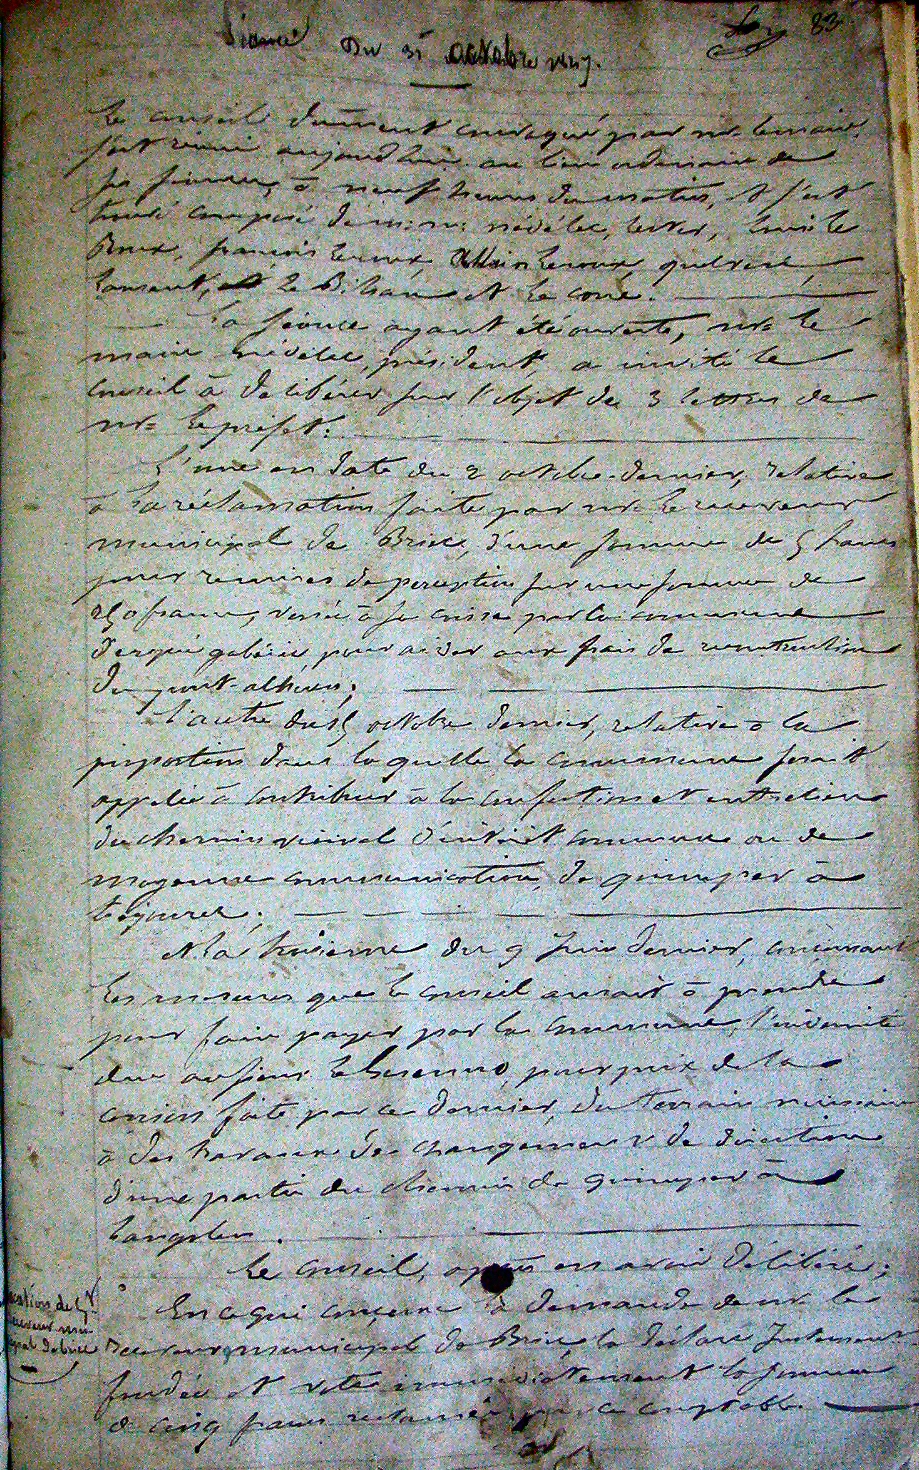 83
Séance Du 31 octobre
Le conseil dûment convoqué par mr. le maire
s'est réuni aujourd'hui au lieu ordinaire de
ses séances, à neuf heures du matin, et s'est
trouvé composé de m.m. nédélec, Louis le
Roux, françois Leroux, Alain Leroux,
Le Bihan et Le
La séance ayant été ouverte, mr. le
maire nédélec, président a invité le
conseil à délibérer sur l'objet de 3 lettres de
mr. le préfet:
L'une en date du 2 octobre dernier, relative
à la réclamation faite par mr. le receveur
municipal de Briec, d'une somme de 5 francs
pour remises de perception sur une somme de
250 francs, versée à sa caisse par la commune
d'ergué gabéric, pour aider aux frais de reconstruction
du pont-
L'autre du 15 octobre dernier, relative à la
proportion dans laquelle la commune serait
appelée à contribuer à la confection et entretien
du chemin vicinal d'intérêt commun ou de
moyenne communication, de quimper à
Et la troisième du 9 Juin dernier, concernant
les mesures que le conseil aurait à prendre
pour faire payer par la commune, l'indemnité
due au sieur pour prix de la
cession faite par ce dernier, du terrain nécessaire
à des travaux de changement de direction
d'une partie du chemin de quimper à
Langolen.
Le conseil, après en avoir délibéré;
En ce qui concerne la demande de mr. le
receveur municipal de Briec, la déclare Justement
fondée et vote immédiatement la somme
de cinq francs réclamée par ce comptable.
receveur muni-
cipal de briec